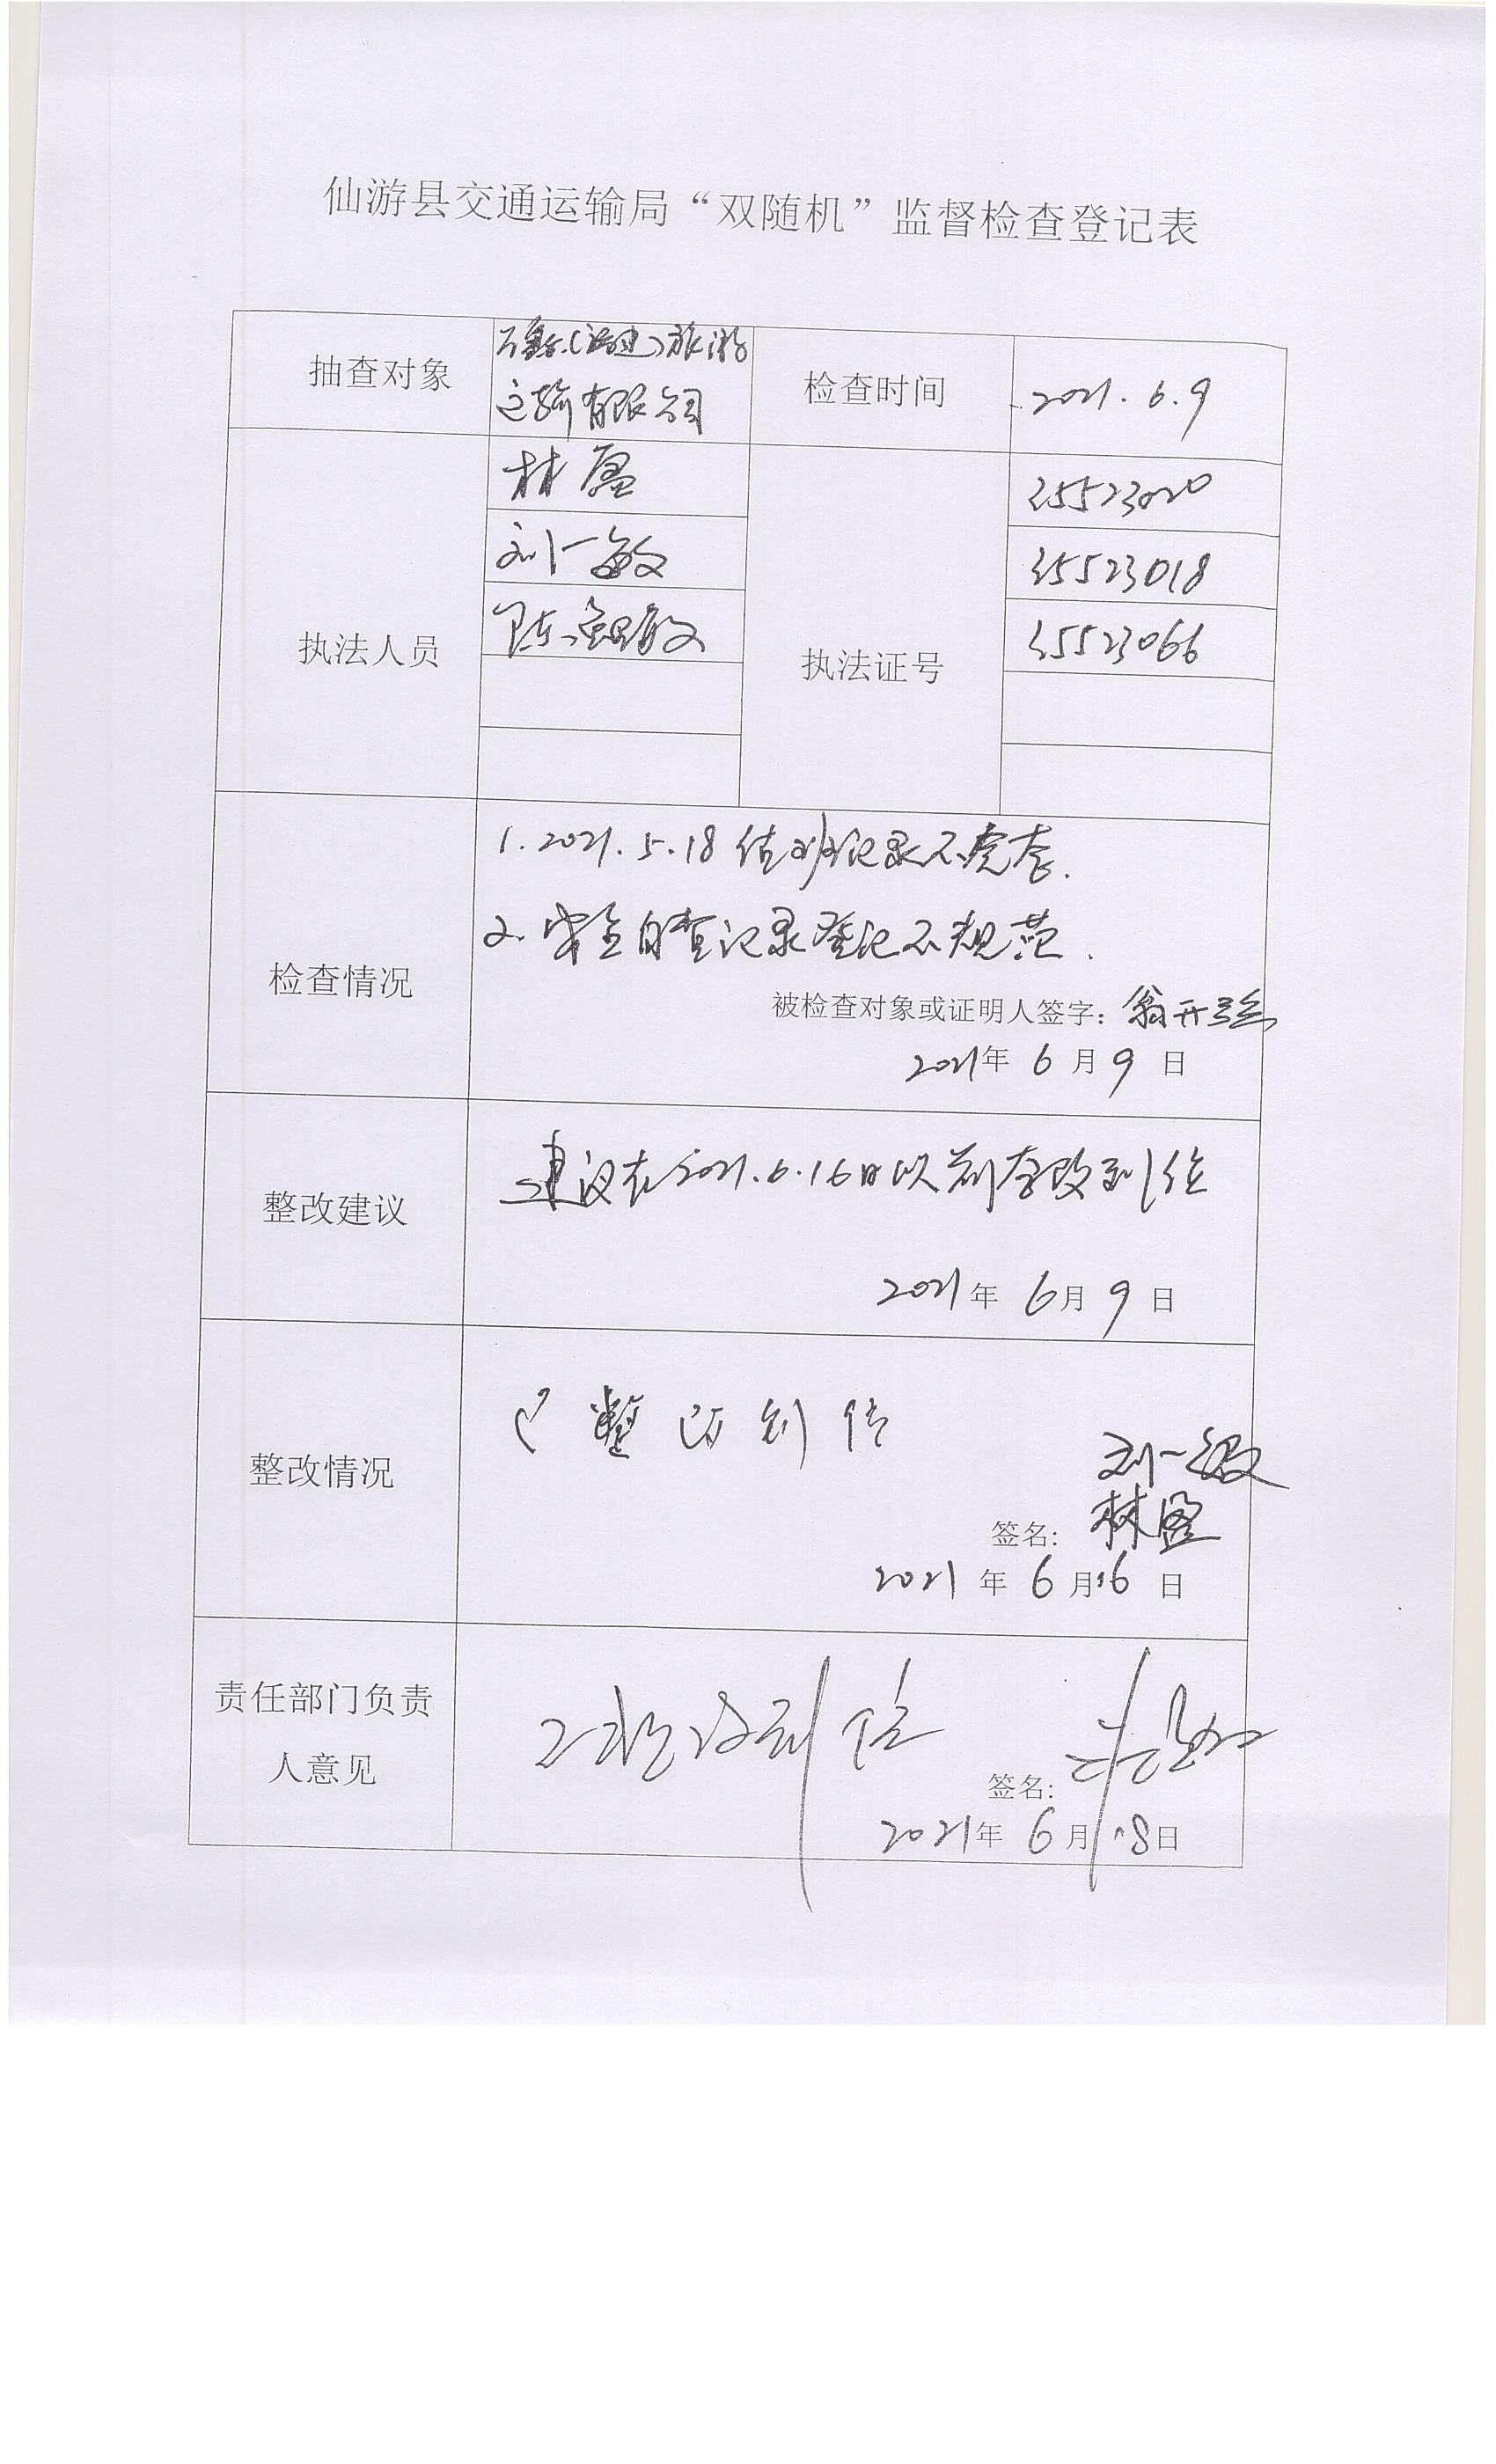 仙游县交通运输局“双随机”监督检查登记表
抽查对象
(福建)旅游
运输有限公司
检查时间
2021.6.9
执法人员
林盈
刘一敏
陈
执法证号
35523020
35523018
35523066
检查情况
1.2021.5.18值班记录不完整.
2.安全自查记录登记不规范.
被检查对象或证明人签字：翁开
2021年6月9日
整改建议
建议在2021.6.16日以前整改到位
2021年6月9日
整改情况
已整改到位
刘一敏
签名：林盈
2021年6月16日
责任部门负责
人意见
已整改到位
签名：
2021年6月18日